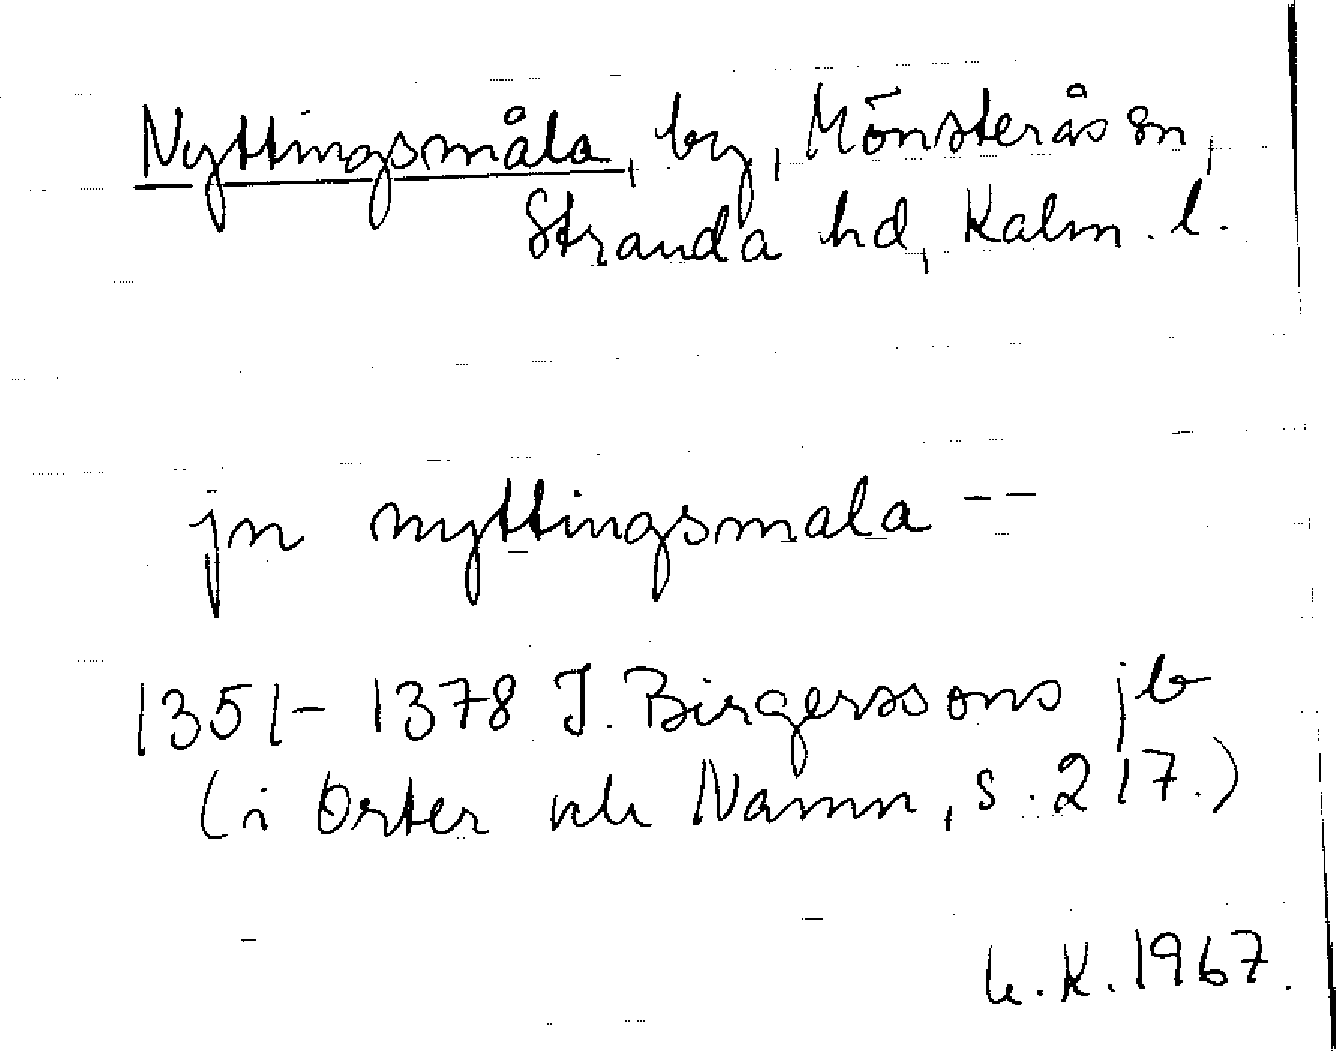 Nyttingsmåla, by, Mönsterås sn,
Stranda hd, Kalm. l.
jn nyttingsmala --
1351-1378 J. Birgerssons jb
(i Orter och Namn, s. 217.)
K. 1967.